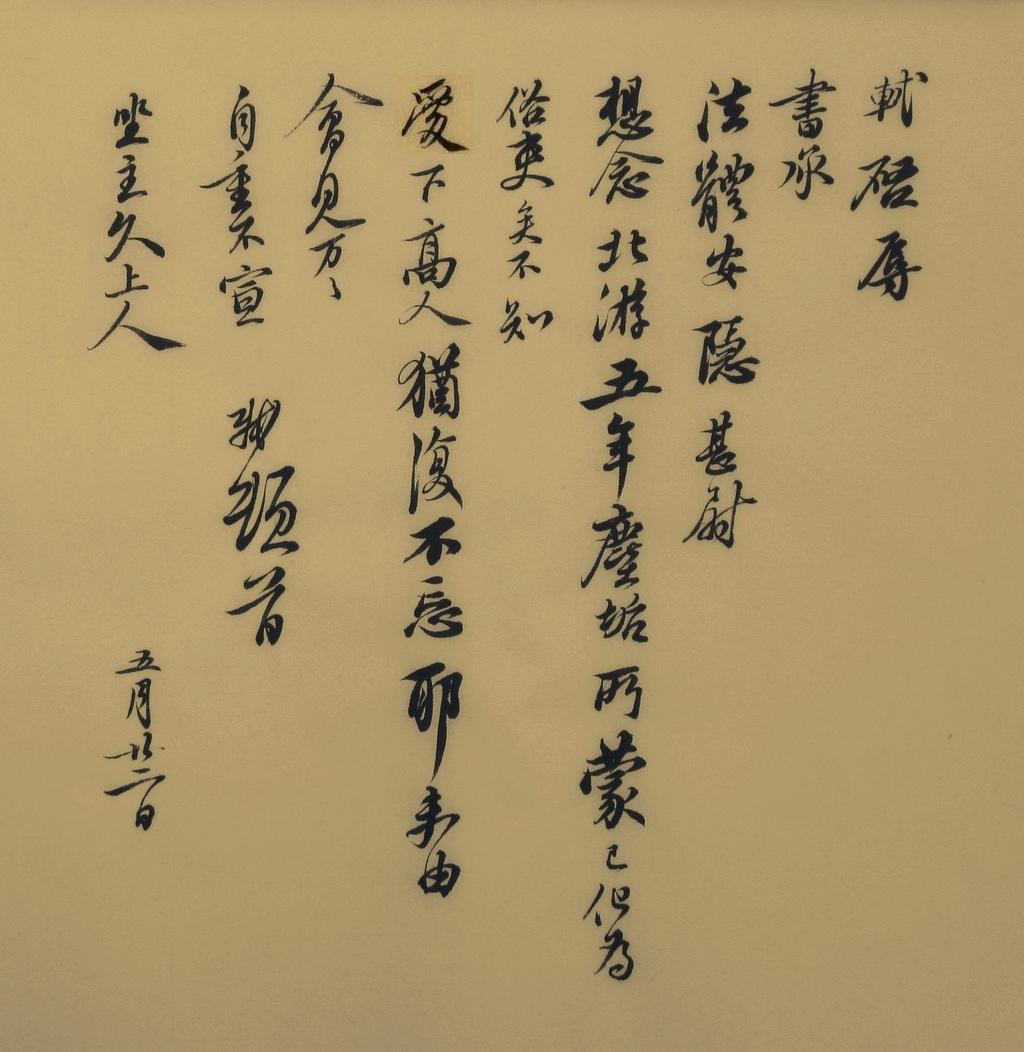 軾啓辱
書承
法體安隱甚尉
想念北游五年塵垢所蒙已化為
俗吏矣不知
愛下高人猶復不忘耶未由
會見万〻
自重不宣 軾頓首
坐主久上人 五月廿二日